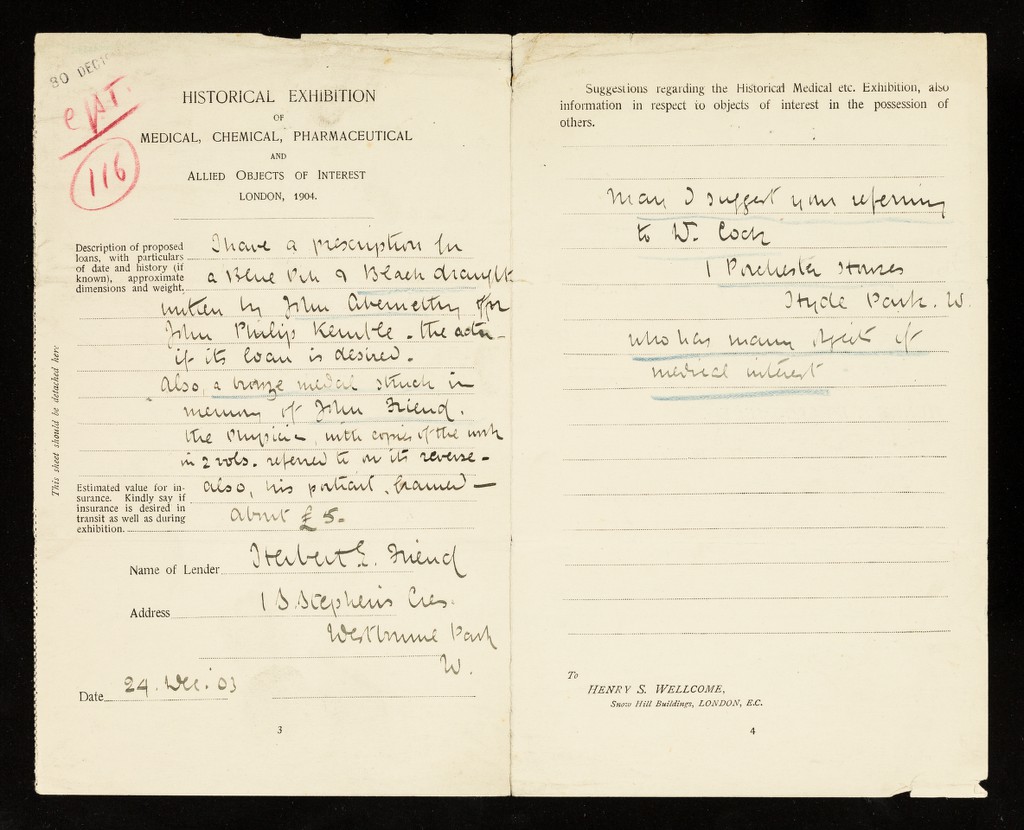 30 DEC
EXT.
116
HISTORICAL EXHIBITION
OF
MEDICAL, CHEMICAL, PHARMACEUTICAL
AND
ALLIED OBJECTS OF INTEREST
LONDON, 1904.
Description of proposed
loans, with particulars
of date and history (if
known), approximate
dimensions and weight.
I have a prescription for
a Blue Pill & Black draught
written by John Abernethy for
John Philip Kemble - the actor -
if its loan is desired.
Also, a bronze medal struck in
memory of John Friend,
the Physician, with copies of the work
in 2 vols. referred to on its reverse -
also, his portrait, framed -
Estimated value for in-
surance. Kindly say if
insurance is desired in
transit as well as during
exhibition.
about £5-
Name of Lender Herbert E. Friend
Address 1 S. Stephen's Cres.
Westbourne Park
W.
Date 24. Dec. 03
3
This sheet should be detached here
Suggestions regarding the Historical Medical etc. Exhibition, also
information in respect to objects of interest in the possession of
others.
May I suggest your referring
to W. Cock
1 Porchester Houses
Hyde Park. W.
who has many objects of
medical interest
To
HENRY S. WELLCOME,
Snow Hill Buildings, LONDON, E.C.
4